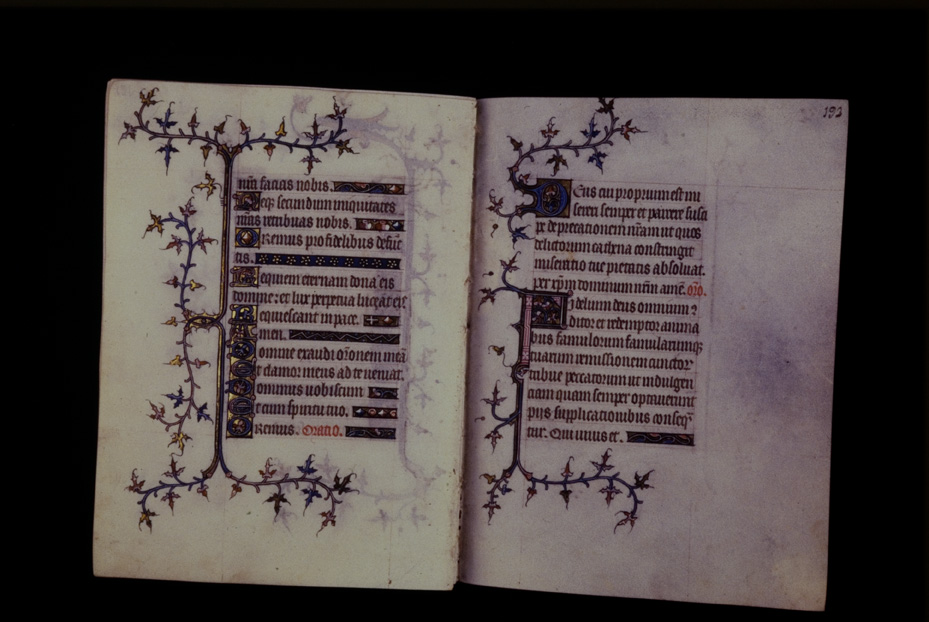 nr̃a facias nobis.
Neq; secundum iniquitates
nr̃as retribuas nobis.
Oremus pro fidelibus defūc
tis.
Requiem eternam dona eis
domine: et lux perpetua luceat eis
Requiescant in pace.
Amen.
Domine exaudi or̃onem meā
Et clamor meus ad te veniat.
Dominus vobiscum.
Et cum spiritu tuo.
Oremus. Oratio.
192
Deus cui proprium est mi
sereri semper et parcere susci
pe deprecationem nr̃am ut quos
delictorum cathena constringit
miseratio tue pietatis absoluat.
per xp̃m dominum nr̃m amē. or̃o.
Fidelium deus omnium
ditor et redemptor anima
bus famulorum famularumq;
tuarum remissionem cunctor
tribue peccatorum ut indulgen
ciam quam semper optauerunt
pijs supplicationibus conseq̃
tur. Qui viuis et.